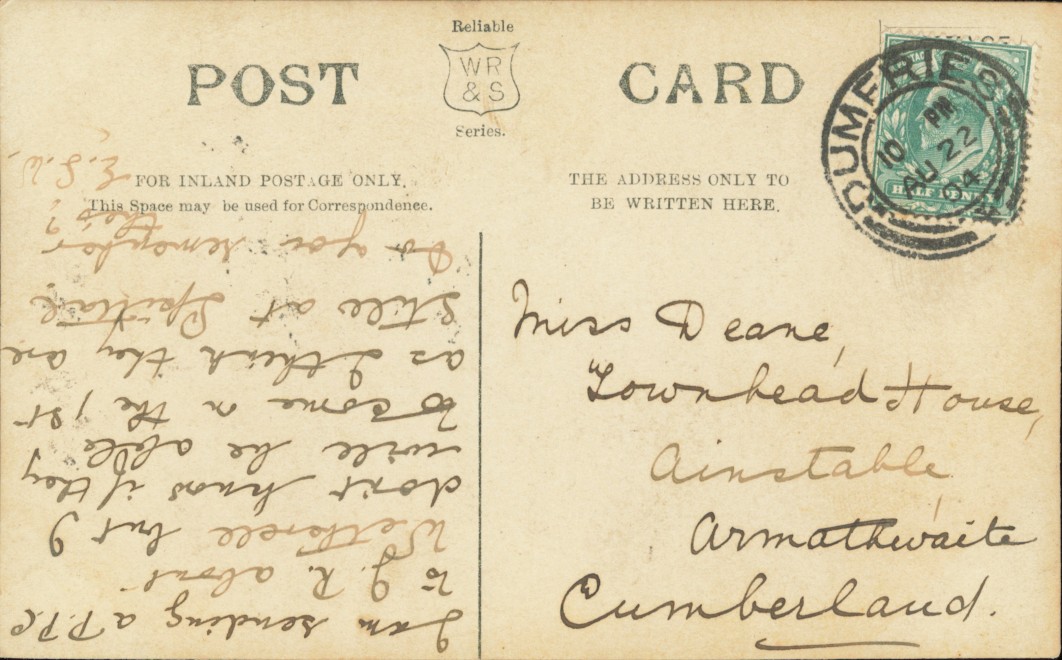 Reliable
WR
& S
Series.
POST CARD
FOR INLAND POSTAGE ONLY.
This Space may be used for Correspondence.
THE ADDRESS ONLY TO
BE WRITTEN HERE.
DUMFRIES
10 PM
AU 22
04
HALF PENNY
Miss Deane,
Townhead House,
Ainstable
Armathwaite
Cumberland.
I am sending a P.P.C
to J. R. about
but I
don't know if they
will be able
to come on the 1st
as I think they are
still at Spittal
Do you remember
this?
E.S.W.